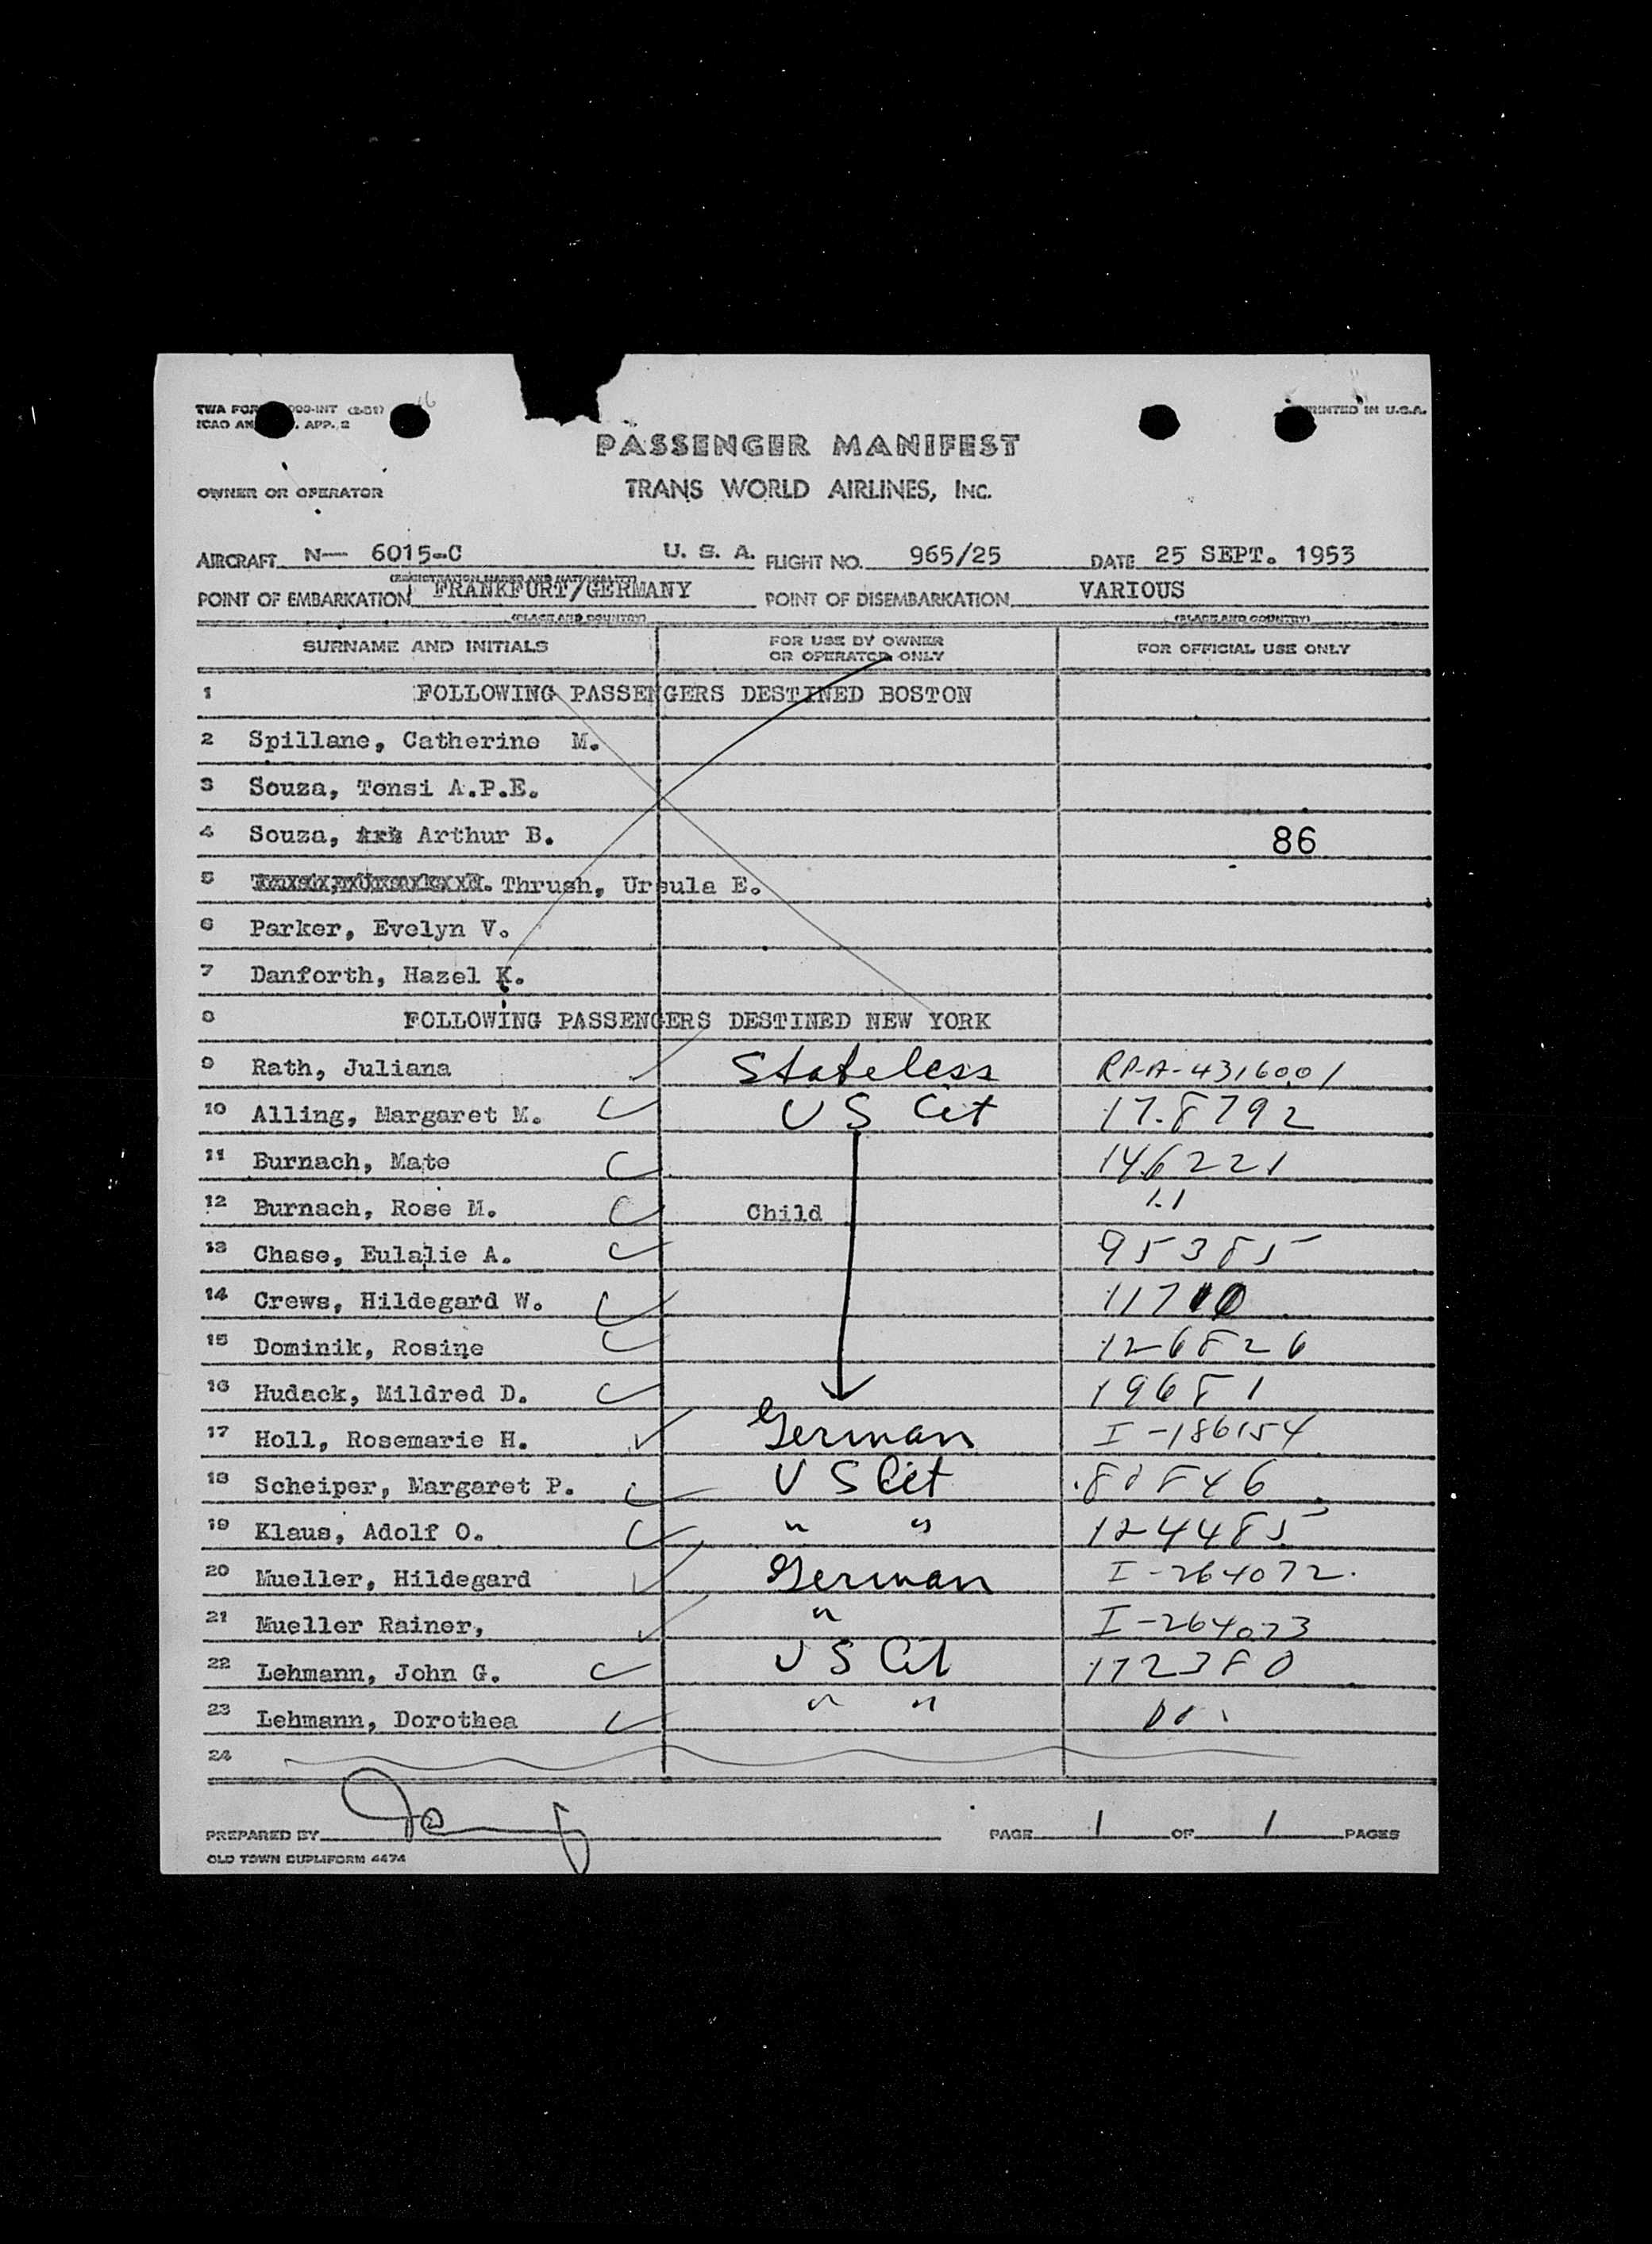 TWA FOR 000-INT (2-51)
PRINTED IN U.S.A.
ICAO AN . APP. 2
PASSENGER MANIFEST
OWNER OR OPERATOR TRANS WORLD AIRLINES, INC.
AIRCRAFT N— 6015-C U. S. A. FLIGHT NO. 965/25 DATE 25 SEPT. 1953
(REGISTRATION MARKS AND NATIONALITY)
POINT OF EMBARKATION FRANKFURT/GERMANY POINT OF DISEMBARKATION VARIOUS
(PLACE AND COUNTRY) (PLACE AND COUNTRY)
SURNAME AND INITIALS FOR USE BY OWNER OR OPERATOR ONLY FOR OFFICIAL USE ONLY
1 FOLLOWING PASSENGERS DESTINED BOSTON
2 Spillane, Catherine M.
3 Souza, Tensi A.P.E.
4 Souza, Arthur B. 86
5 Thrush, Ursula E.
6 Parker, Evelyn V.
7 Danforth, Hazel K.
8 FOLLOWING PASSENGERS DESTINED NEW YORK
9 Rath, Juliana Stateless RP-A-4316001
10 Alling, Margaret M. US Cit 178792
11 Burnach, Mate 146221
12 Burnach, Rose M. Child 11
13 Chase, Eulalie A. 95385
14 Crews, Hildegard W. 11710
15 Dominik, Rosine 126826
16 Hudack, Mildred D. 19681
17 Holl, Rosemarie H. German I-186154
18 Scheiper, Margaret P. US Cit
19 Klaus, Adolf O. " " 124485
20 Mueller, Hildegard German I-264072
21 Mueller Rainer, " I-264073
22 Lehmann, John G. US Cit 172380
23 Lehmann, Dorothea " "
24
PREPARED BY PAGE 1 OF 1 PAGES
OLD TOWN DUPLIFORM 4474